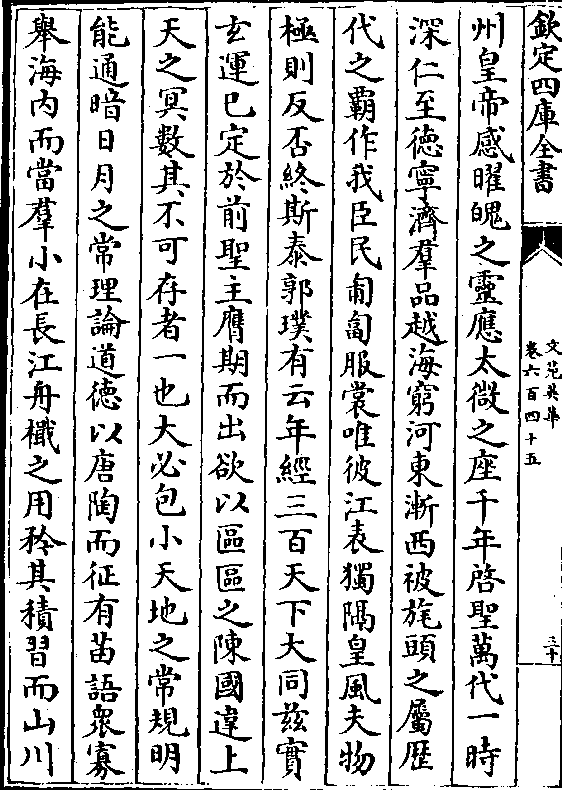 欽定四庫全書
文苑英華
卷六百四十五
三十
州皇帝感曜魄之靈應太微之座千年啓聖萬代一時
深仁至德寧濟羣品越海窮河東漸西被旄頭之屬歴
代之霸作我臣民匍匐服裳唯彼江表獨隅皇風夫物
極則反否終斯泰郭璞有云年經三百天下大同兹實
玄運已定於前聖主膺期而出欲以區區之陳國違上
天之冥數其不可存者一也大必包小天地之常規明
能通暗日月之常理論道德以唐陶而征有苗語衆寡
舉海内而當羣小在長江舟檝之用矜其積習而山川